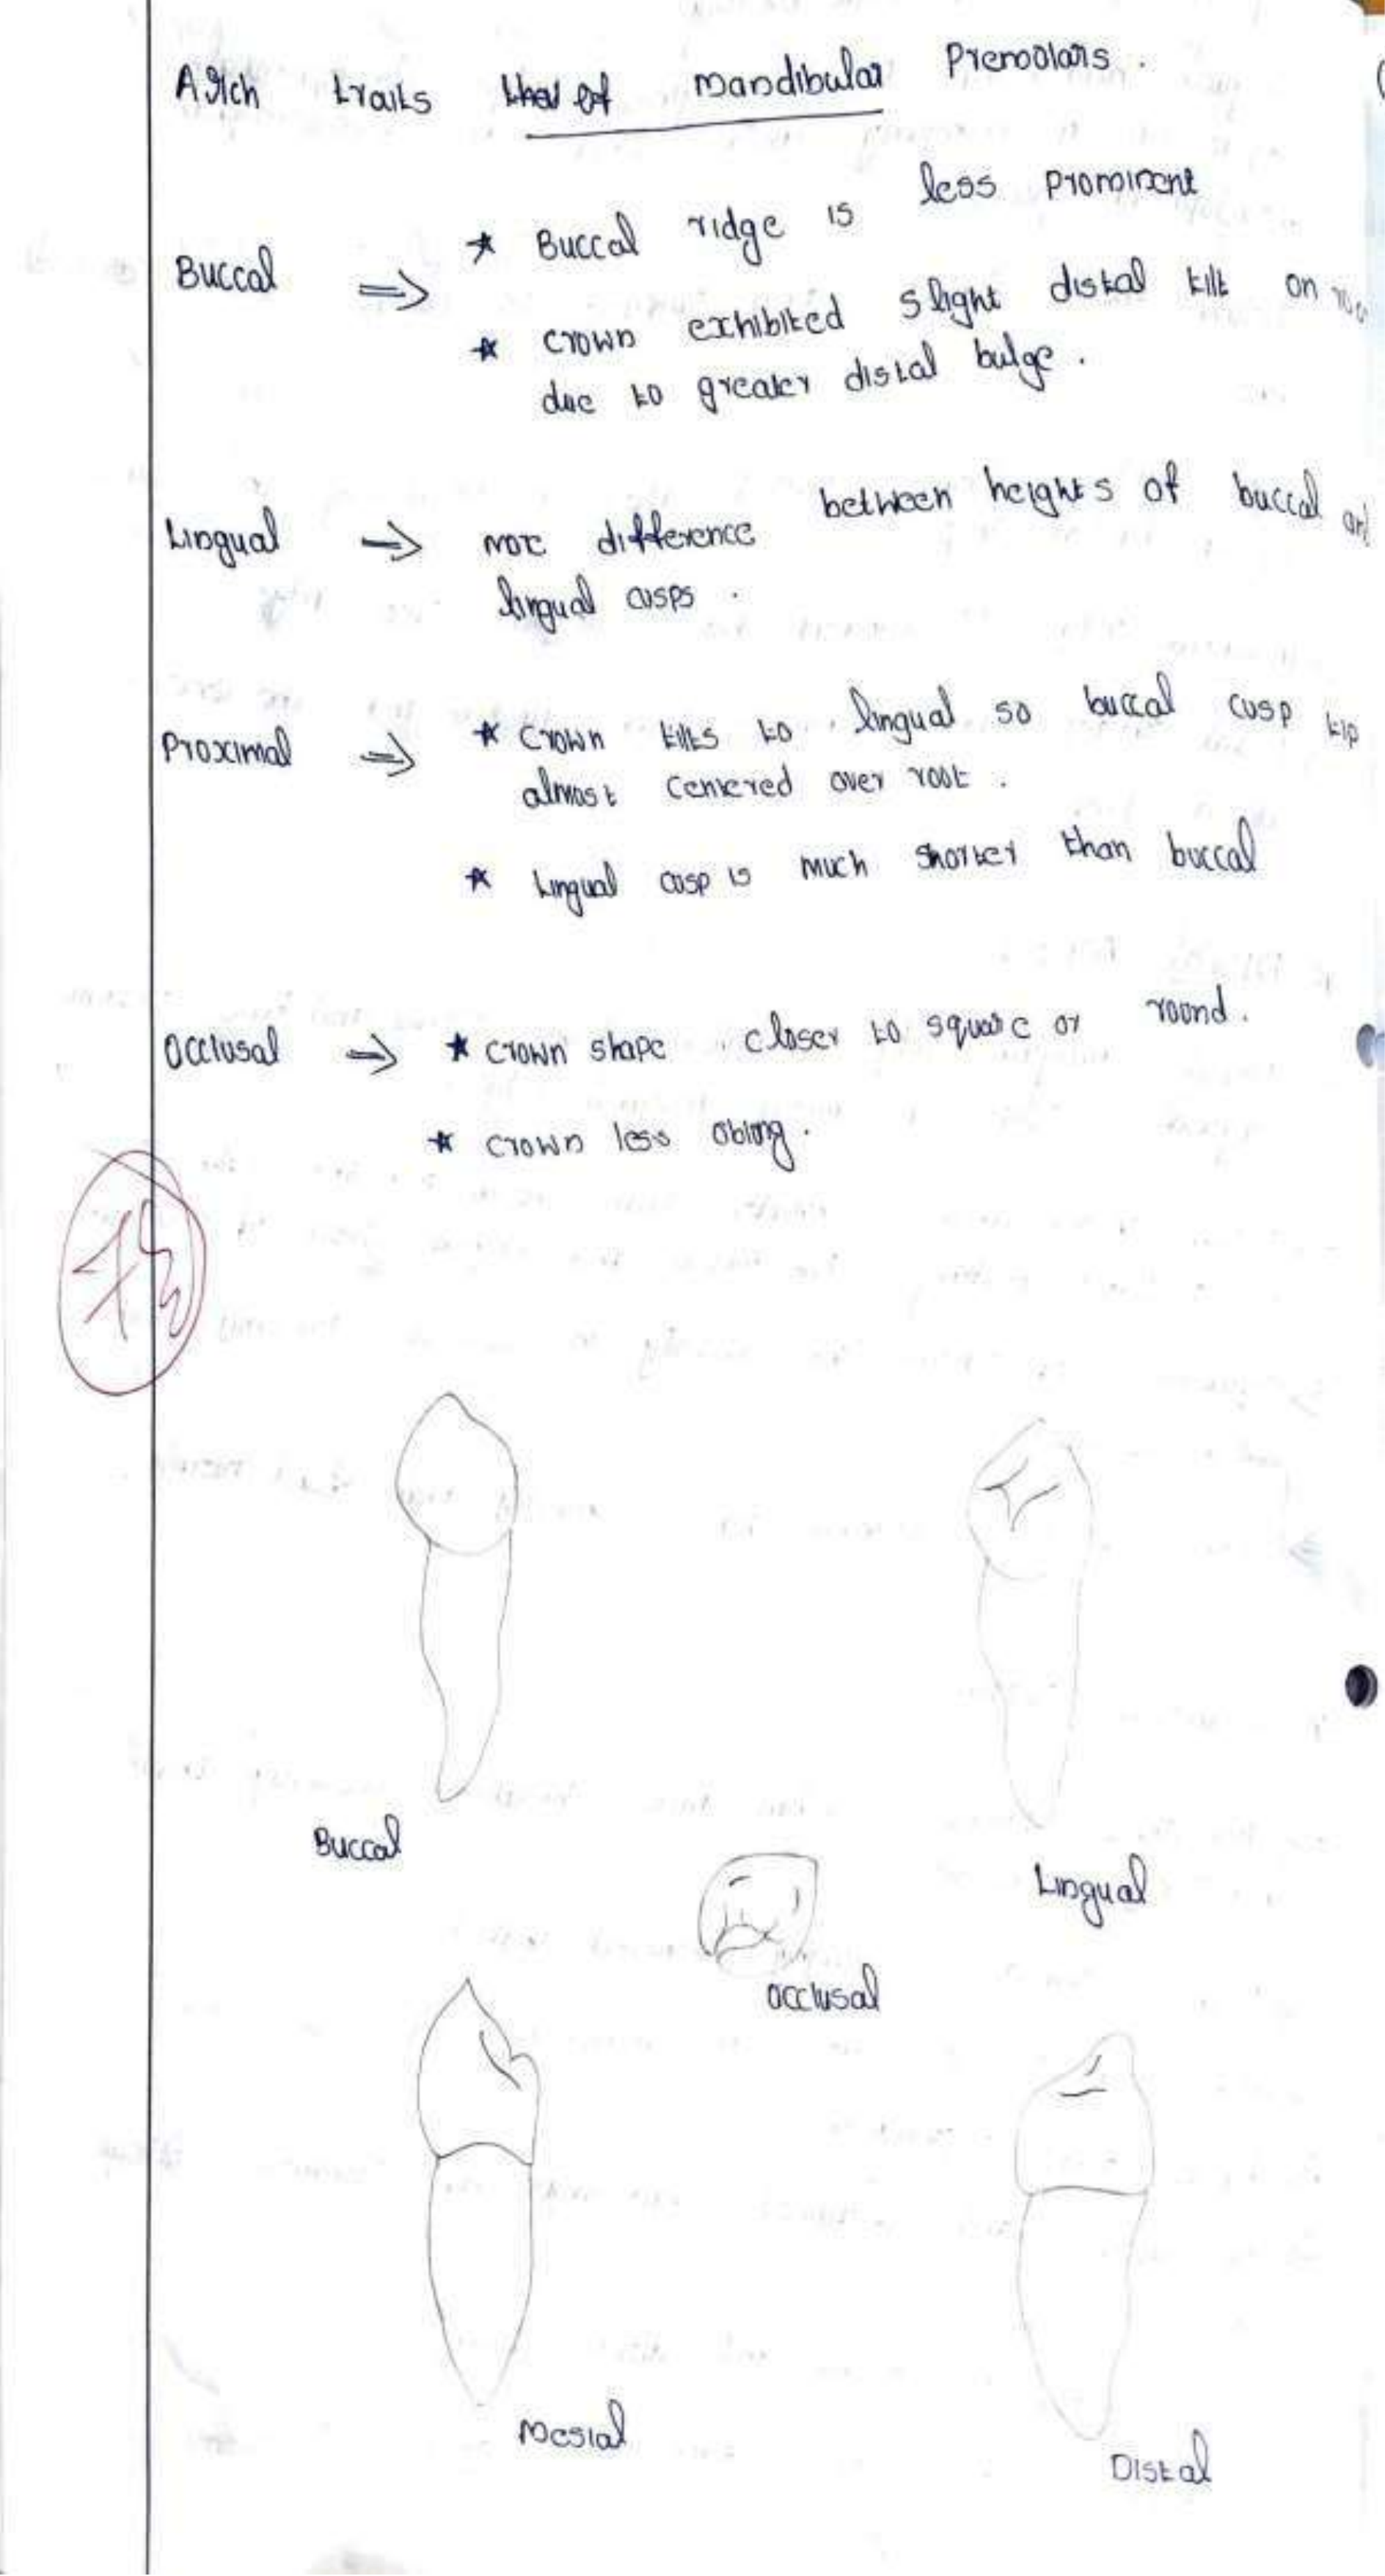 Arch traits of mandibular Premolars.
Buccal ⇒ * Buccal ridge is less prominent
* crown exhibited slight distal tilt on
due to greater distal bulge.
Lingual ⇒ more difference between heights of buccal and
lingual cusps.
Proximal ⇒ * Crown tilts to lingual so buccal cusp tip
almost centered over root.
* Lingual cusp is much shorter than buccal
Occlusal ⇒ * crown shape closer to square or round.
* crown less oblong.
Buccal
Lingual
occlusal
Mesial
Distal